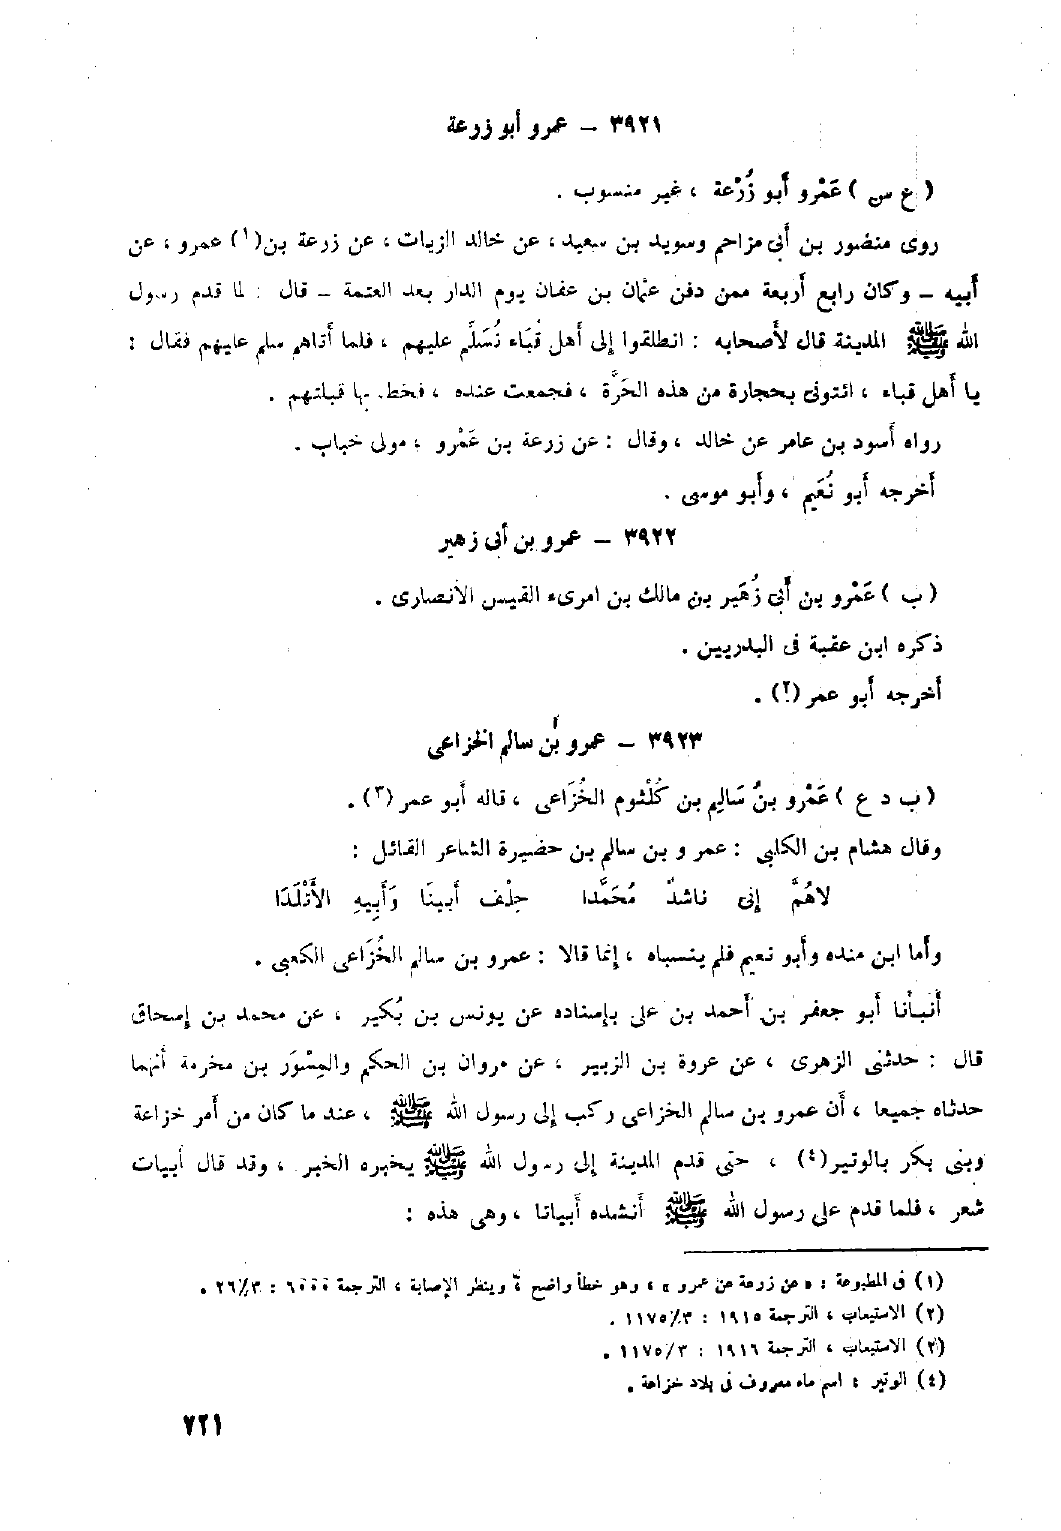 ٣٩٢١ – عمرو أبو زرعة
( ع س ) عَمْرو أبو زُرْعة ، غير منسوب .
روى منصور بن أبى مزاحم وسويد بن سعيد ، عن خالد الزيات ، عن زرعة بن(١) عمرو ، عن
أبيه – وكان رابع أربعة ممن دفن عثمان بن عفان يوم الدار بعد العتمة – قال : لما قدم رسول
الله ﷺ المدينة قال لأصحابه : انطلقوا إلى أهل قُبَاء نُسَلِّم عليهم ، فلما أتاهم سلم عليهم فقال :
يا أهل قباء ، ائتونى بحجارة من هذه الحَرَّة ، فجمعت عنده ، فخط بها قبلتهم .
رواه أسود بن عامر عن خالد ، وقال : عن زرعة بن عَمْرو ، مولى خباب .
أخرجه أبو نُعَيم ، وأبو موسى .
٣٩٢٢ – عمرو بن أبى زهير
( ب ) عَمْرو بن أبى زُهَير بن مالك بن امرىء القيس الأنصارى .
ذكره ابن عقبة فى البدريين .
أخرجه أبو عمر (٢) .
٣٩٢٣ – عمرو بن سالم الخزاعى
( ب د ع ) عَمْرو بنُ سَالِم بن كُلْثوم الخُزَاعى ، قاله أبو عمر (٣) .
وقال هشام بن الكلبى : عمرو بن سالم بن حضيرة الشاعر القائل :
لاهُمَّ إنى ناشدٌ مُحَمَّدا حِلْف أبينَا وَأبِيهِ الأتْلَدَا
وأما ابن منده وأبو نعيم فلم ينسباه ، إنما قالا : عمرو بن سالم الخُزَاعى الكعبى .
أنبأنا أبو جعفر بن أحمد بن على بإسناده عن يونس بن بُكير ، عن محمد بن إسحاق
قال : حدثنى الزهرى ، عن عروة بن الزبير ، عن مروان بن الحكم والمِسْوَر بن مخرمة أنهما
حدثاه جميعا ، أن عمرو بن سالم الخزاعى ركب إلى رسول الله ﷺ ، عند ما كان من أمر خزاعة
وبنى بكر بالوتير(٤) ، حتى قدم المدينة إلى رسول الله ﷺ يخبره الخبر ، وقد قال أبيات
شعر ، فلما قدم على رسول الله ﷺ أنشده أبياتا ، وهى هذه :
(١) فى المطبوعة : « عن زرعة عن عمرو » ، وهو خطأ واضح ؛ وينظر الإصابة ، الترجمة ٦٥٥٥ : ٢٦/٣ .
(٢) الاستيعاب ، الترجمة ١٩١٥ : ١١٧٥/٣ .
(٣) الاستيعاب ، الترجمة ١٩١٦ : ١١٧٥/٣ .
(٤) الوتير : اسم ماء معروف فى بلاد خزاعة .
٧٢١